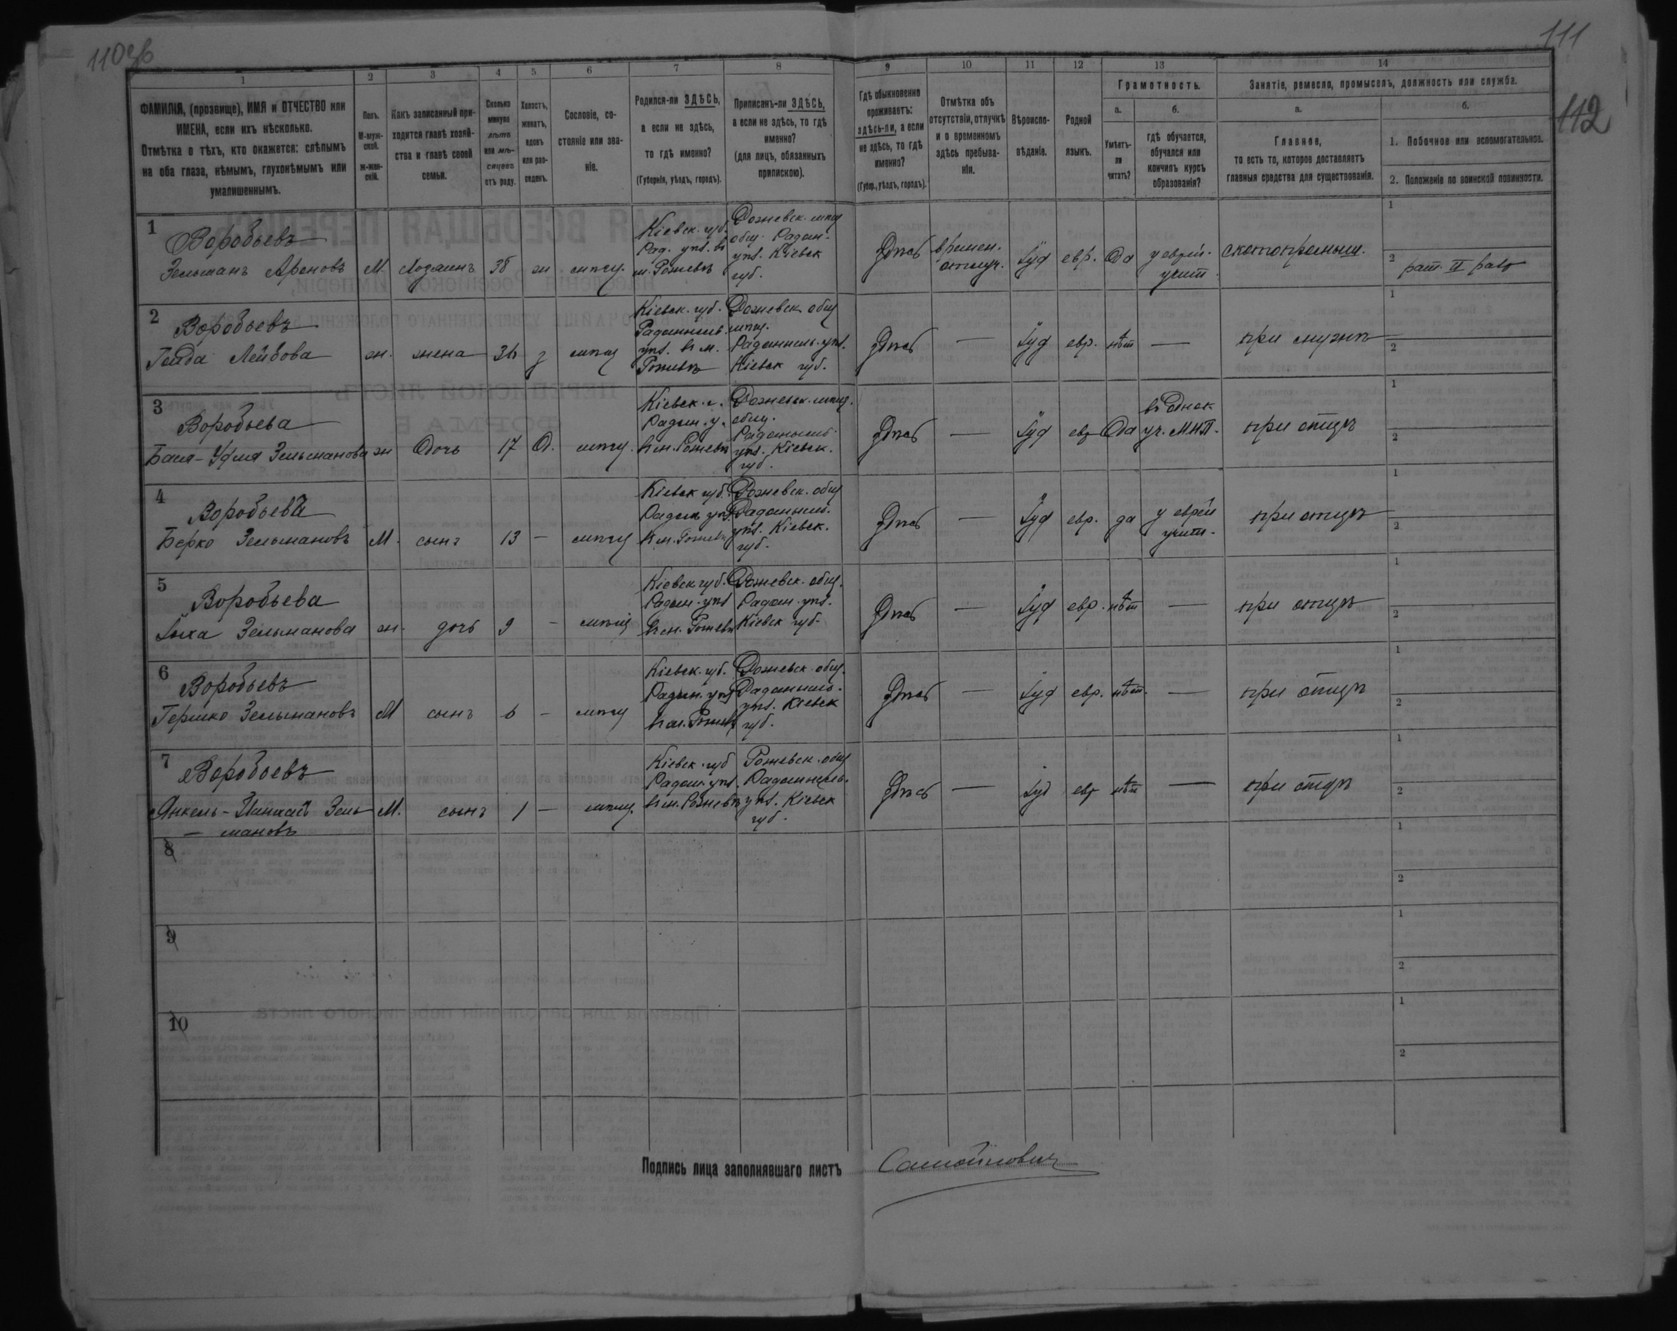 110об
111
112
1 2 3 4 5 6 7 8 9 10 11 12 13 14
ФАМИЛІЯ, (прозвище), ИМЯ и ОТЧЕСТВО или
ИМЕНА, если ихъ нѣсколько.
Отмѣтка о тѣхъ, кто окажется: слѣпымъ
на оба глаза, нѣмымъ, глухонѣмымъ или
умалишеннымъ.
Полъ.
М-муж-
ской.
ж-жен-
скій.
Какъ записанный при-
ходится главѣ хозяй-
ства и главѣ своей
семьи.
Сколько
минуло
лѣтъ
или мѣ-
сяцевъ
отъ роду.
Холостъ,
женатъ,
вдовъ
или раз-
веденъ.
Сословіе, со-
стояніе или зва-
ніе.
Родился-ли ЗДѢСЬ,
а если не здѣсь,
то гдѣ именно?
(Губернія, уѣздъ, городъ).
Приписанъ-ли ЗДѢСЬ,
а если не здѣсь, то гдѣ
именно?
(для лицъ, обязанныхъ
припискою).
Гдѣ обыкновенно
проживаетъ:
здѣсь-ли, а если
не здѣсь, то гдѣ
именно?
(Губер., уѣздъ, городъ).
Отмѣтка объ
отсутствіи, отлучкѣ
и о временномъ
здѣсь пребыва-
ніи.
Вѣроиспо-
вѣданіе.
Родной
языкъ.
Грамотность.
а.
Умѣетъ-
ли
читать?
б.
гдѣ обучается,
обучался или
кончилъ курсъ
образованія?
Занятіе, ремесло, промыселъ, должность или служба.
а.
Главное,
то есть то, которое доставляетъ
главныя средства для существованія.
б.
1. Побочное или вспомогательное.
2. Положеніе по воинской повинности.
1
Воробьевъ
Зельманъ Ароновъ
М.
Хозяинъ
ж
мѣщ.
Кіевск. губ.
Рад. уѣз. въ
м. Рожевѣ
Рожевск. мѣщ
общ. Радом.
уѣз. Кіевск
губ.
Здѣсь
времен.
отлуч.
Іуд
евр.
Да
у еврей.
учит.
скотопромыш.
1
2
рат. II разр
2
Воробьевъ
Лейбова
ж.
жена
мѣщ
Кіевск. губ.
Радомысл.
уѣз. въ м.
Рожевѣ
Рожевск. общ
мѣщ.
Радомысл. уѣз.
Кіевск губ.
Здѣсь
—
Іуд
евр.
нѣт
—
при мужѣ
1
2
3
Воробьева
Зельманова
ж
Дочь
17
Д.
мѣщ.
Кіевск. г.
Радом. у.
въ м. Рожевѣ
Рожевск. мѣщ.
общ.
Радомысл.
уѣз. Кіевск.
губ.
Здѣсь
—
Іуд
евр
Да
уч. МНП.
при отцѣ
1
2
4
Воробьева
Берко Зельмановъ
М.
сынъ
13
—
мѣщ
Кіевск губ.
Радом. уѣз
въ м. Рожевѣ
Рожевск. общ
Радомысл.
уѣз. Кіевск.
губ.
Здѣсь
—
Іуд
евр.
да
у еврей
учит.
при отцѣ
1
2
5
Воробьева
Зельманова
ж.
дочь
9
-
мѣщ
Кіевск губ.
Радом. уѣз
въ м. Рожевѣ
Рожевск. общ.
Радом. уѣз.
Кіевск губ.
Здѣсь
—
Іуд
евр.
нѣт
—
при отцѣ
1
2
6
Воробьевъ
Гершко Зельмановъ
М
сынъ
6
-
мѣщ
Кіевск. губ.
Радом. уѣз
въ м. Рожевѣ
Рожевск. общ.
Радомысл.
уѣз. Кіевск
губ.
Здѣсь
—
Іуд
евр.
нѣт.
—
при отцѣ
1
2
7
Воробьевъ
Зель-
мановъ
М.
сынъ
1
—
мѣщ.
Кіевск. губ
Радом. уѣз.
въ м. Рожевѣ
Рожевск. общ
Радомысл.
уѣз. Кіевск
губ.
Здѣсь
—
Іуд
евр
нѣт
—
при отцѣ
1
2
8
1
2
9
1
2
10
1
2
Подпись лица заполнявшаго листъ
Самойлович